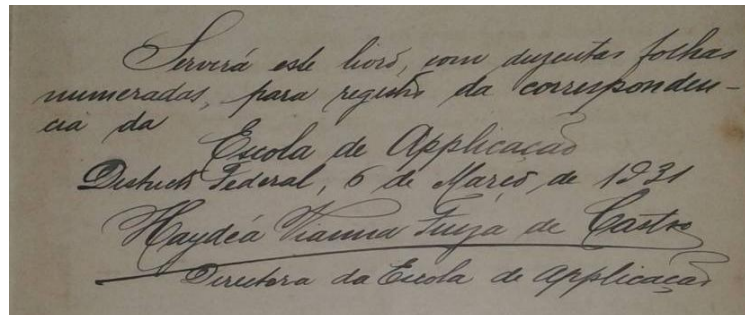 Servirá este livro, com duzentas folhas
numeradas, para registro da corresponden-
cia da
Escola de Applicação
Districto Federal, 6 de Março de 1931
Haydéa Vianna Fiuza de Castro
Directora da Escola de Applicação